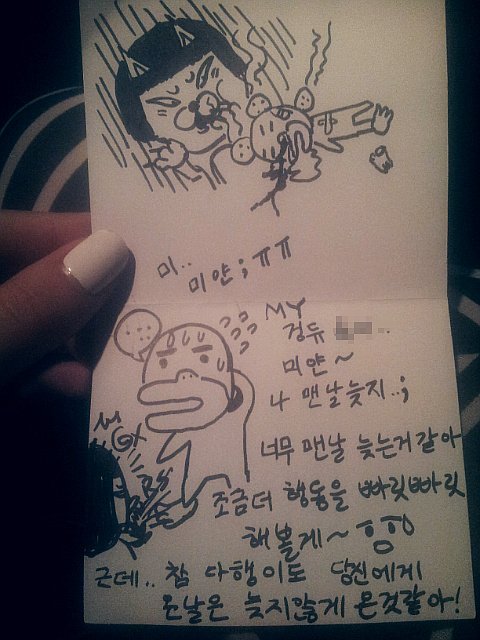 미..
미얀;ㅠㅠ
MY
겅듀
미얀~
나 맨날늦지..;
너무 맨날 늦는거같아
조금더 행동을 빠릿빠릿
해볼게~
근데.. 참 다행이도 당신에게
온날은 늦지않게 온것같아!